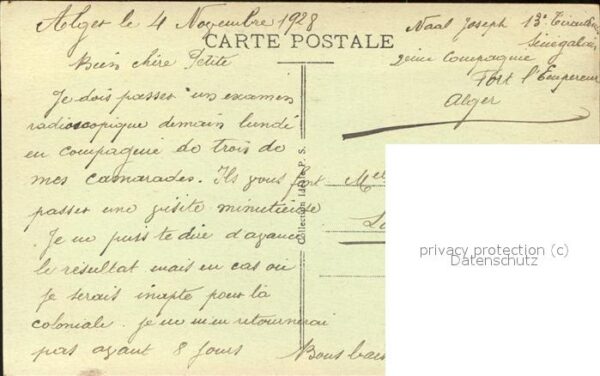 Alger le 4 Novembre 1928
CARTE POSTALE
Bien chère Petite
Je dois passer un examen
radioscopique demain lundé
en compagnie de trois de
mes camarades. Ils vous font
passer une visite minutieuse
. Je ne puis te dire d'avance
le résultat mais en cas où
je serais inapte pour la
coloniale. Je ne m'en retournerai
pas avant 8 jours
Bons bais
Collection Idéale P. S.
Naal Joseph 13e Tirailleurs
Sénégalais
2eme Compagnie
Fort l'Empereur
Alger
Mel
privacy protection (c)
Datenschutz